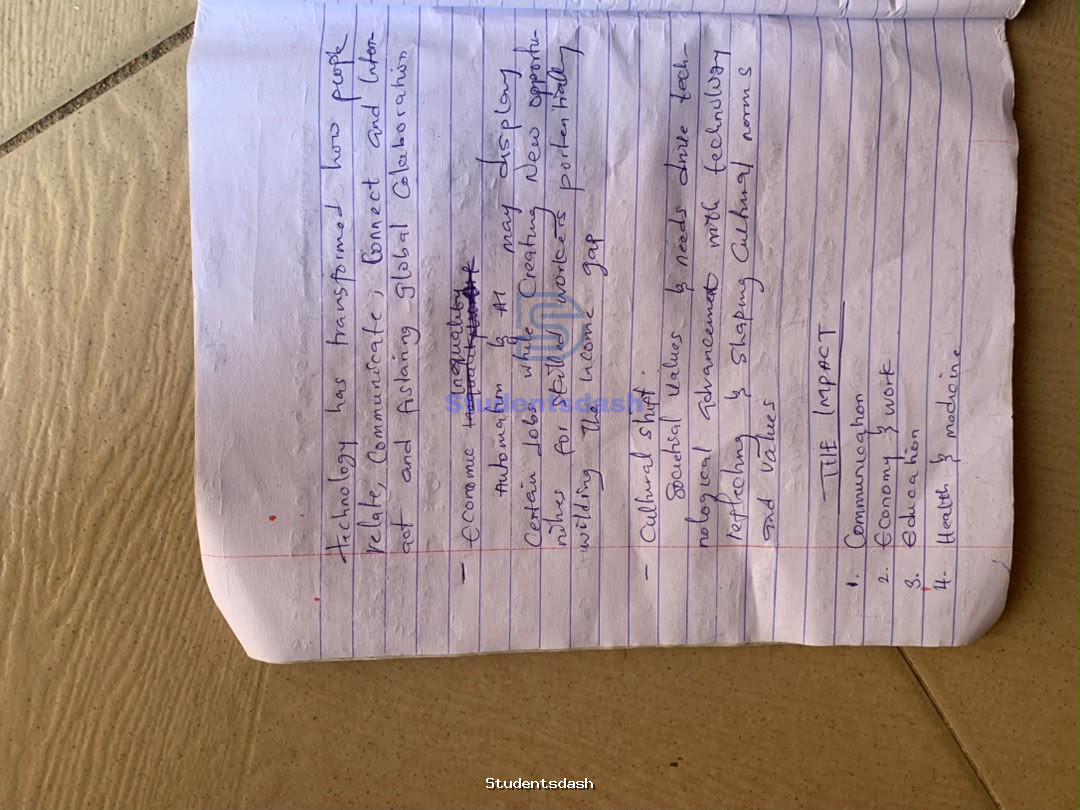 technology has transformed how people
relate, Communicate, Connect and Inter-
act and fistaining global Colaboration
- Economic Inequality
Automation & AI may display
Certain Jobs while Creating New opportu-
nities for skilled workers portentially
wilding the income gap
- Cultural shift.
Societal values & needs drive tech-
nological advancement with technology
reflecting & shaping Cultural norms
and values
THE IMPACT
1. Communication
2. Economy & work
3. Education
4. Health & medicine
Studentsdash
Studentsdash